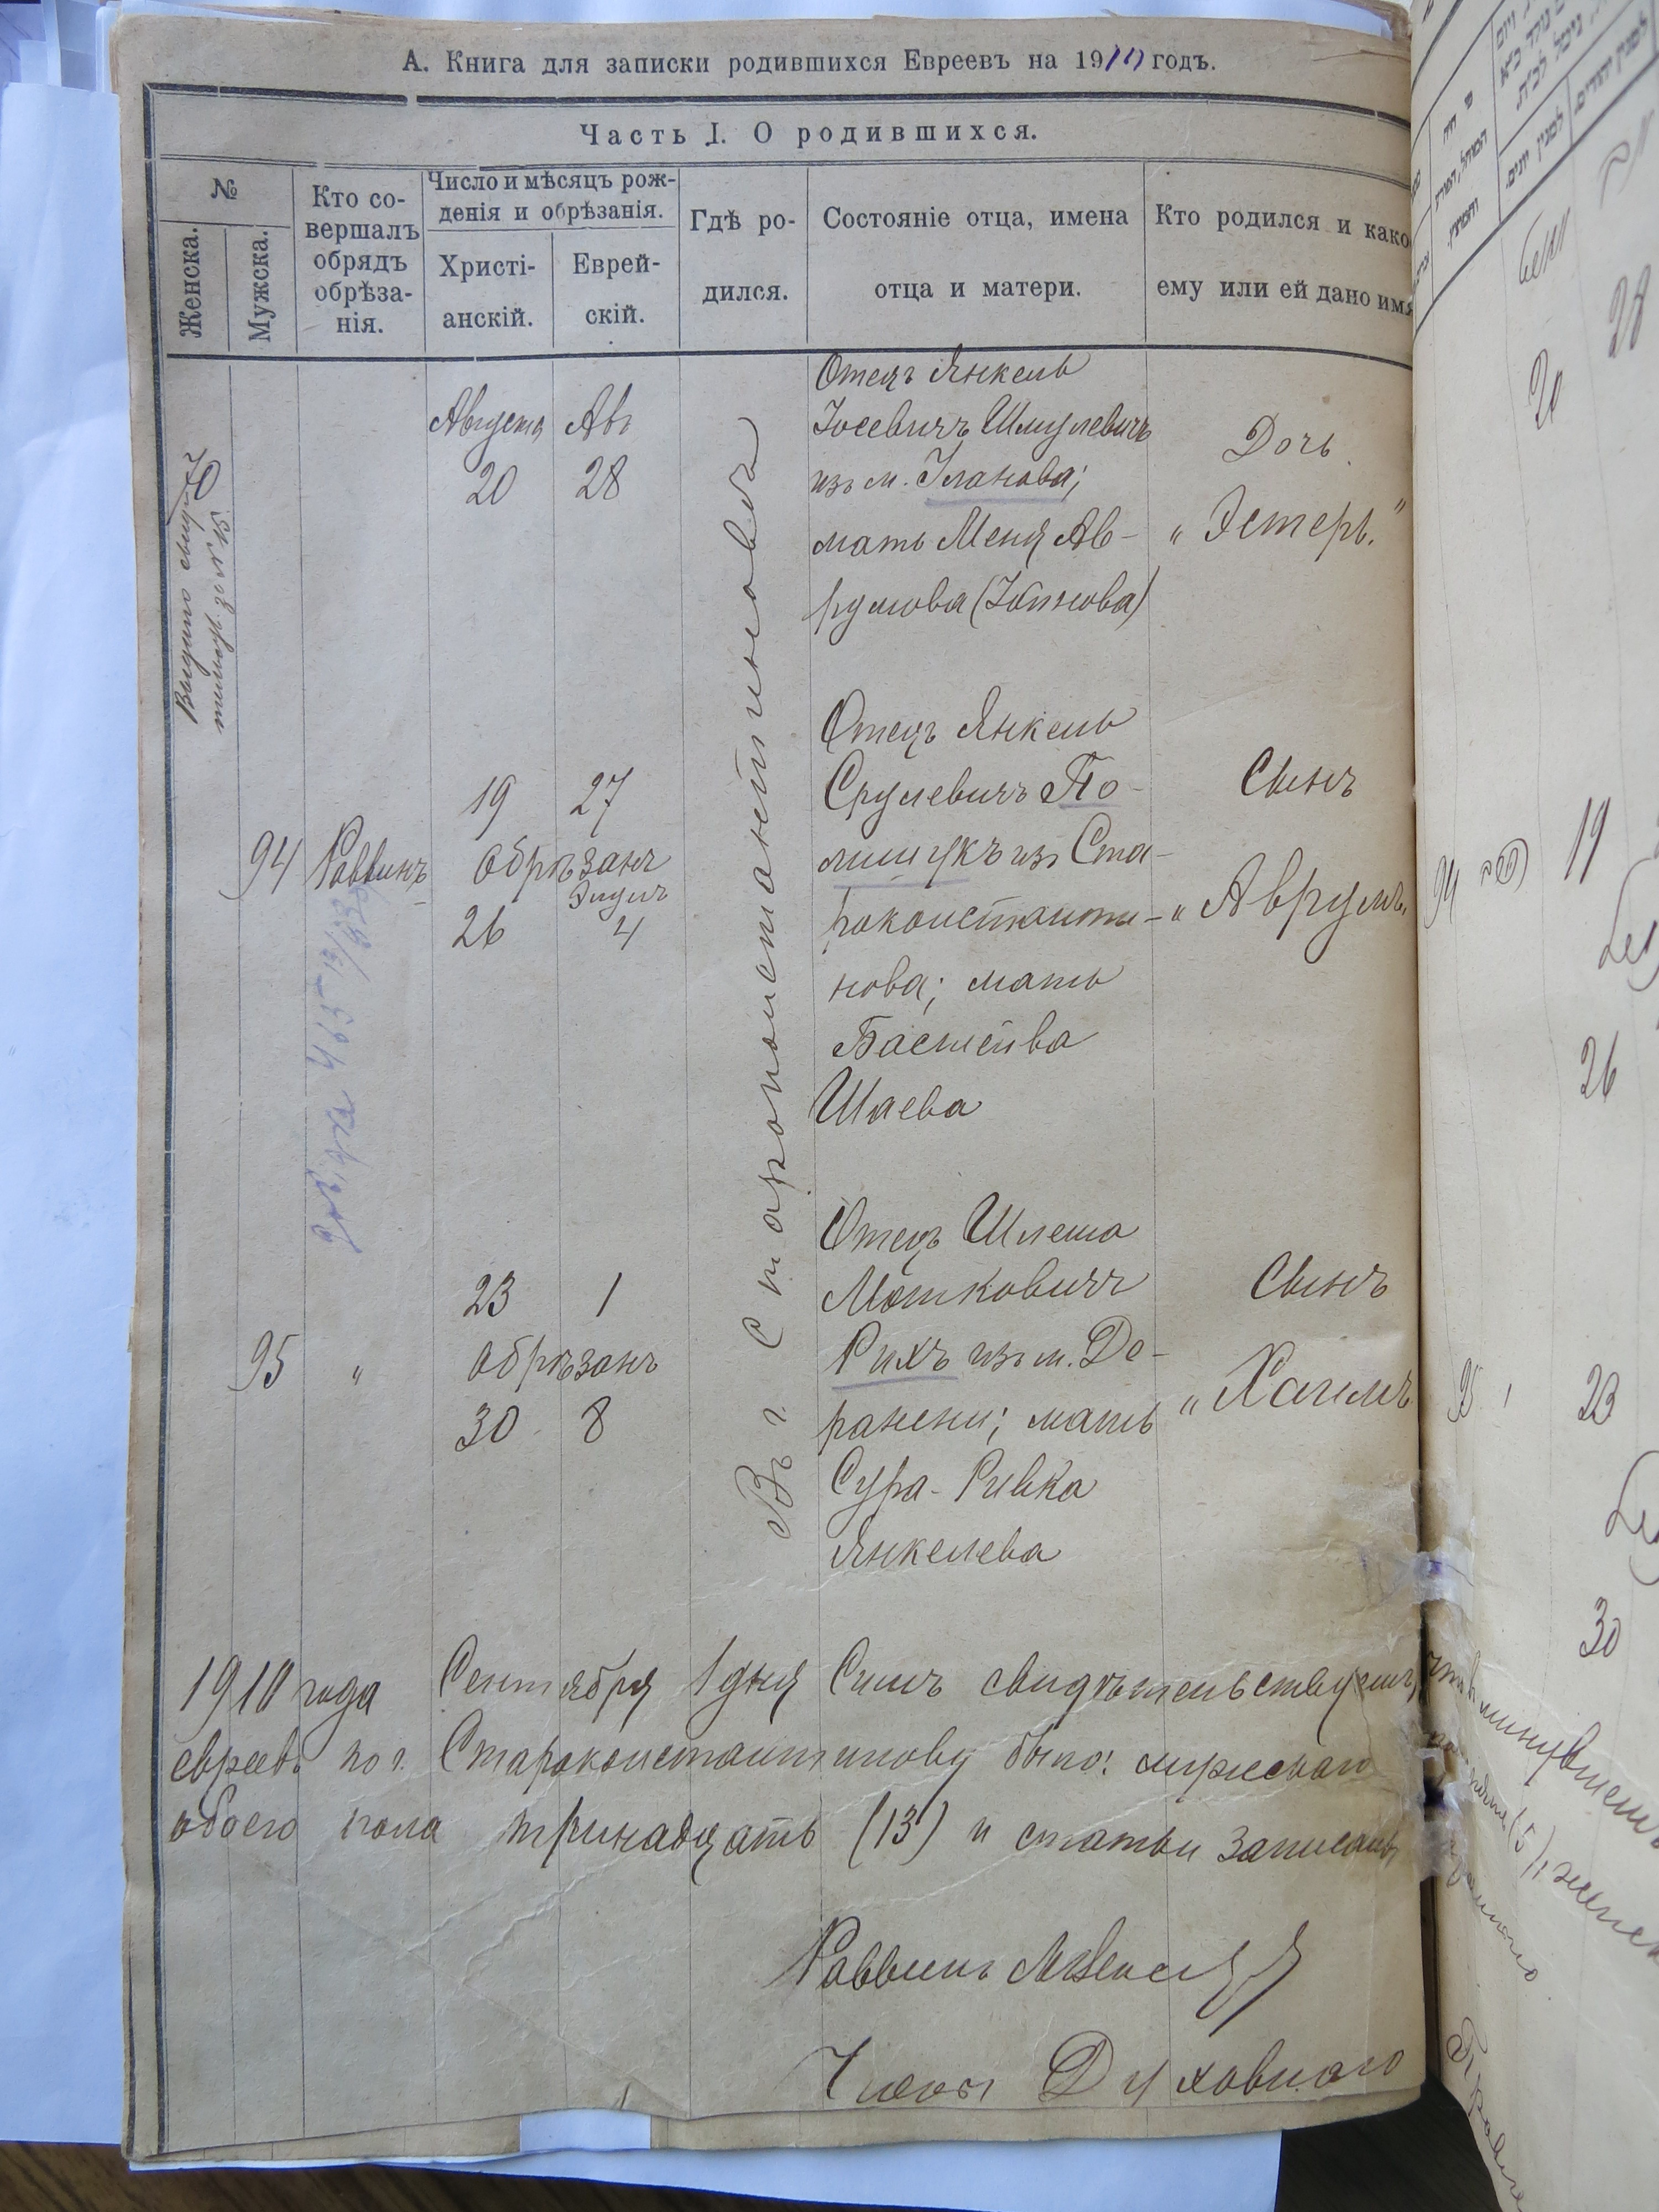 А. Книга для записки родившихся Евреевъ на 1910 годъ.
Часть I. О родившихся.
№
Женска.
Мужска.
Кто со-
вершалъ
обрядъ
обрѣза-
нія.
Число и мѣсяцъ рож-
денія и обрѣзанія.
Христі-
анскій.
Еврей-
скій.
Гдѣ ро-
дился.
Состояніе отца, имена
отца и матери.
Кто родился и како
ему или ей дано имя
70
Выдано
Августа Ав
20 28
Въ г. Староконстантиновѣ
Отецъ Янкель
Іосевичъ Шмулевичъ
изъ м. Уланова;
мать Меня Ав-
румова
Дочь
„Эстеръ."
94 Раввинъ
19 27
обрѣзанъ
Элулъ
26 4
Отецъ Янкель
Срулевичъ По-
лищукъ изъ Ста-
роконстанти-
нова; мать
Басшейва
Шаева
Сынъ
„Аврумъ.
95 „
23 1
обрѣзанъ
30 8
Отецъ Шлема
Мошковичъ
Рихъ изъ м. Де-
ражни; мать
Сура-Ривка
Янкелева
Сынъ
„Хаимъ
1910 года Сентября 1 дня Симъ свидѣтельствуемъ, что въ минувшемъ
евреевъ по г. Староконстантинову было: мужескаго
обоего пола тринадцать (13) и статьи записаны
Раввинъ
Члены Духовнаго
20
28
94
19
26
95
23
30